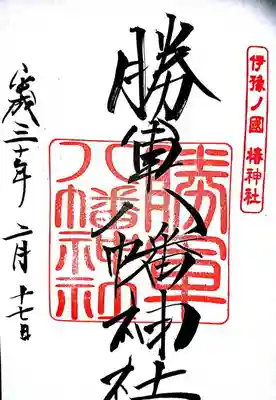 伊豫ノ國 椿神社
勝軍八幡神社
勝軍
八幡神社
平成三十年 二月 十七日